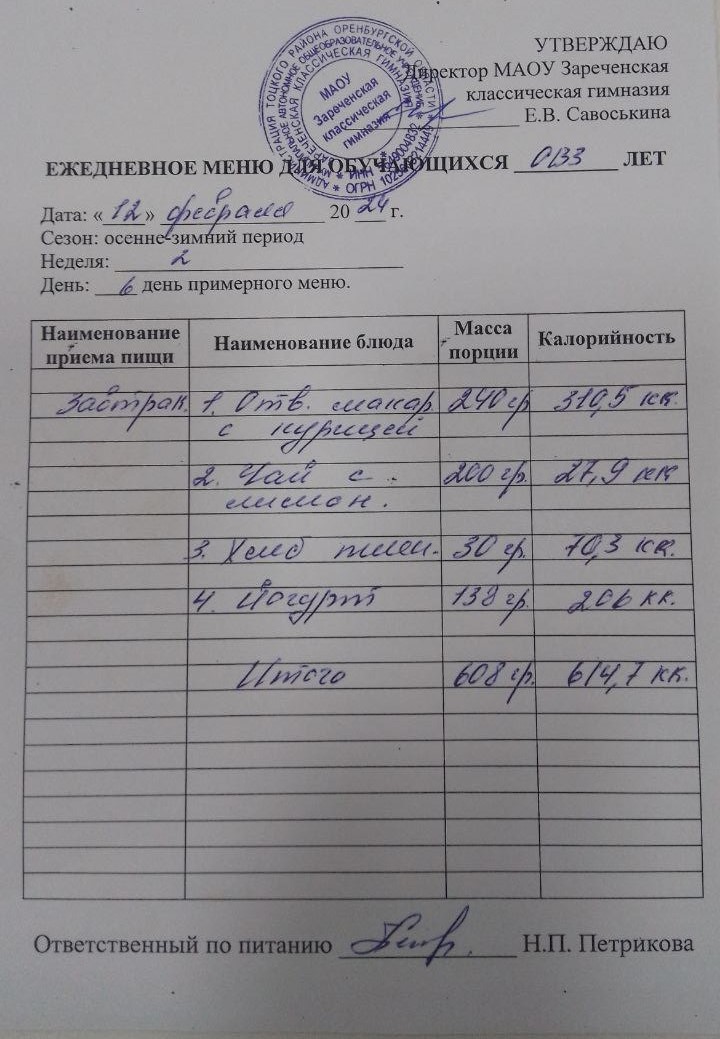 УТВЕРЖДАЮ
Директор МАОУ Зареченская
классическая гимназия
Е.В. Савоськина
МАОУ
Зареченская
классическая
гимназия
ЕЖЕДНЕВНОЕ МЕНЮ ДЛЯ ОБУЧАЮЩИХСЯ ОВЗ ЛЕТ
Дата: «12» февраля 2024 г.
Сезон: осенне-зимний период
Неделя: 2
День: 6 день примерного меню.
Наименование приема пищи Наименование блюда Масса порции Калорийность
Завтрак 1. Отв. макар 240 гр 310,5 кк.
с курицей
2. Чай с 200 гр. 27,9 кк
лимон.
3. Хлеб пшен. 30 гр. 70,3 кк.
4. Йогурт 138 гр. 206 кк.
Итого 608 гр. 614,7 кк.
Ответственный по питанию Н.П. Петрикова